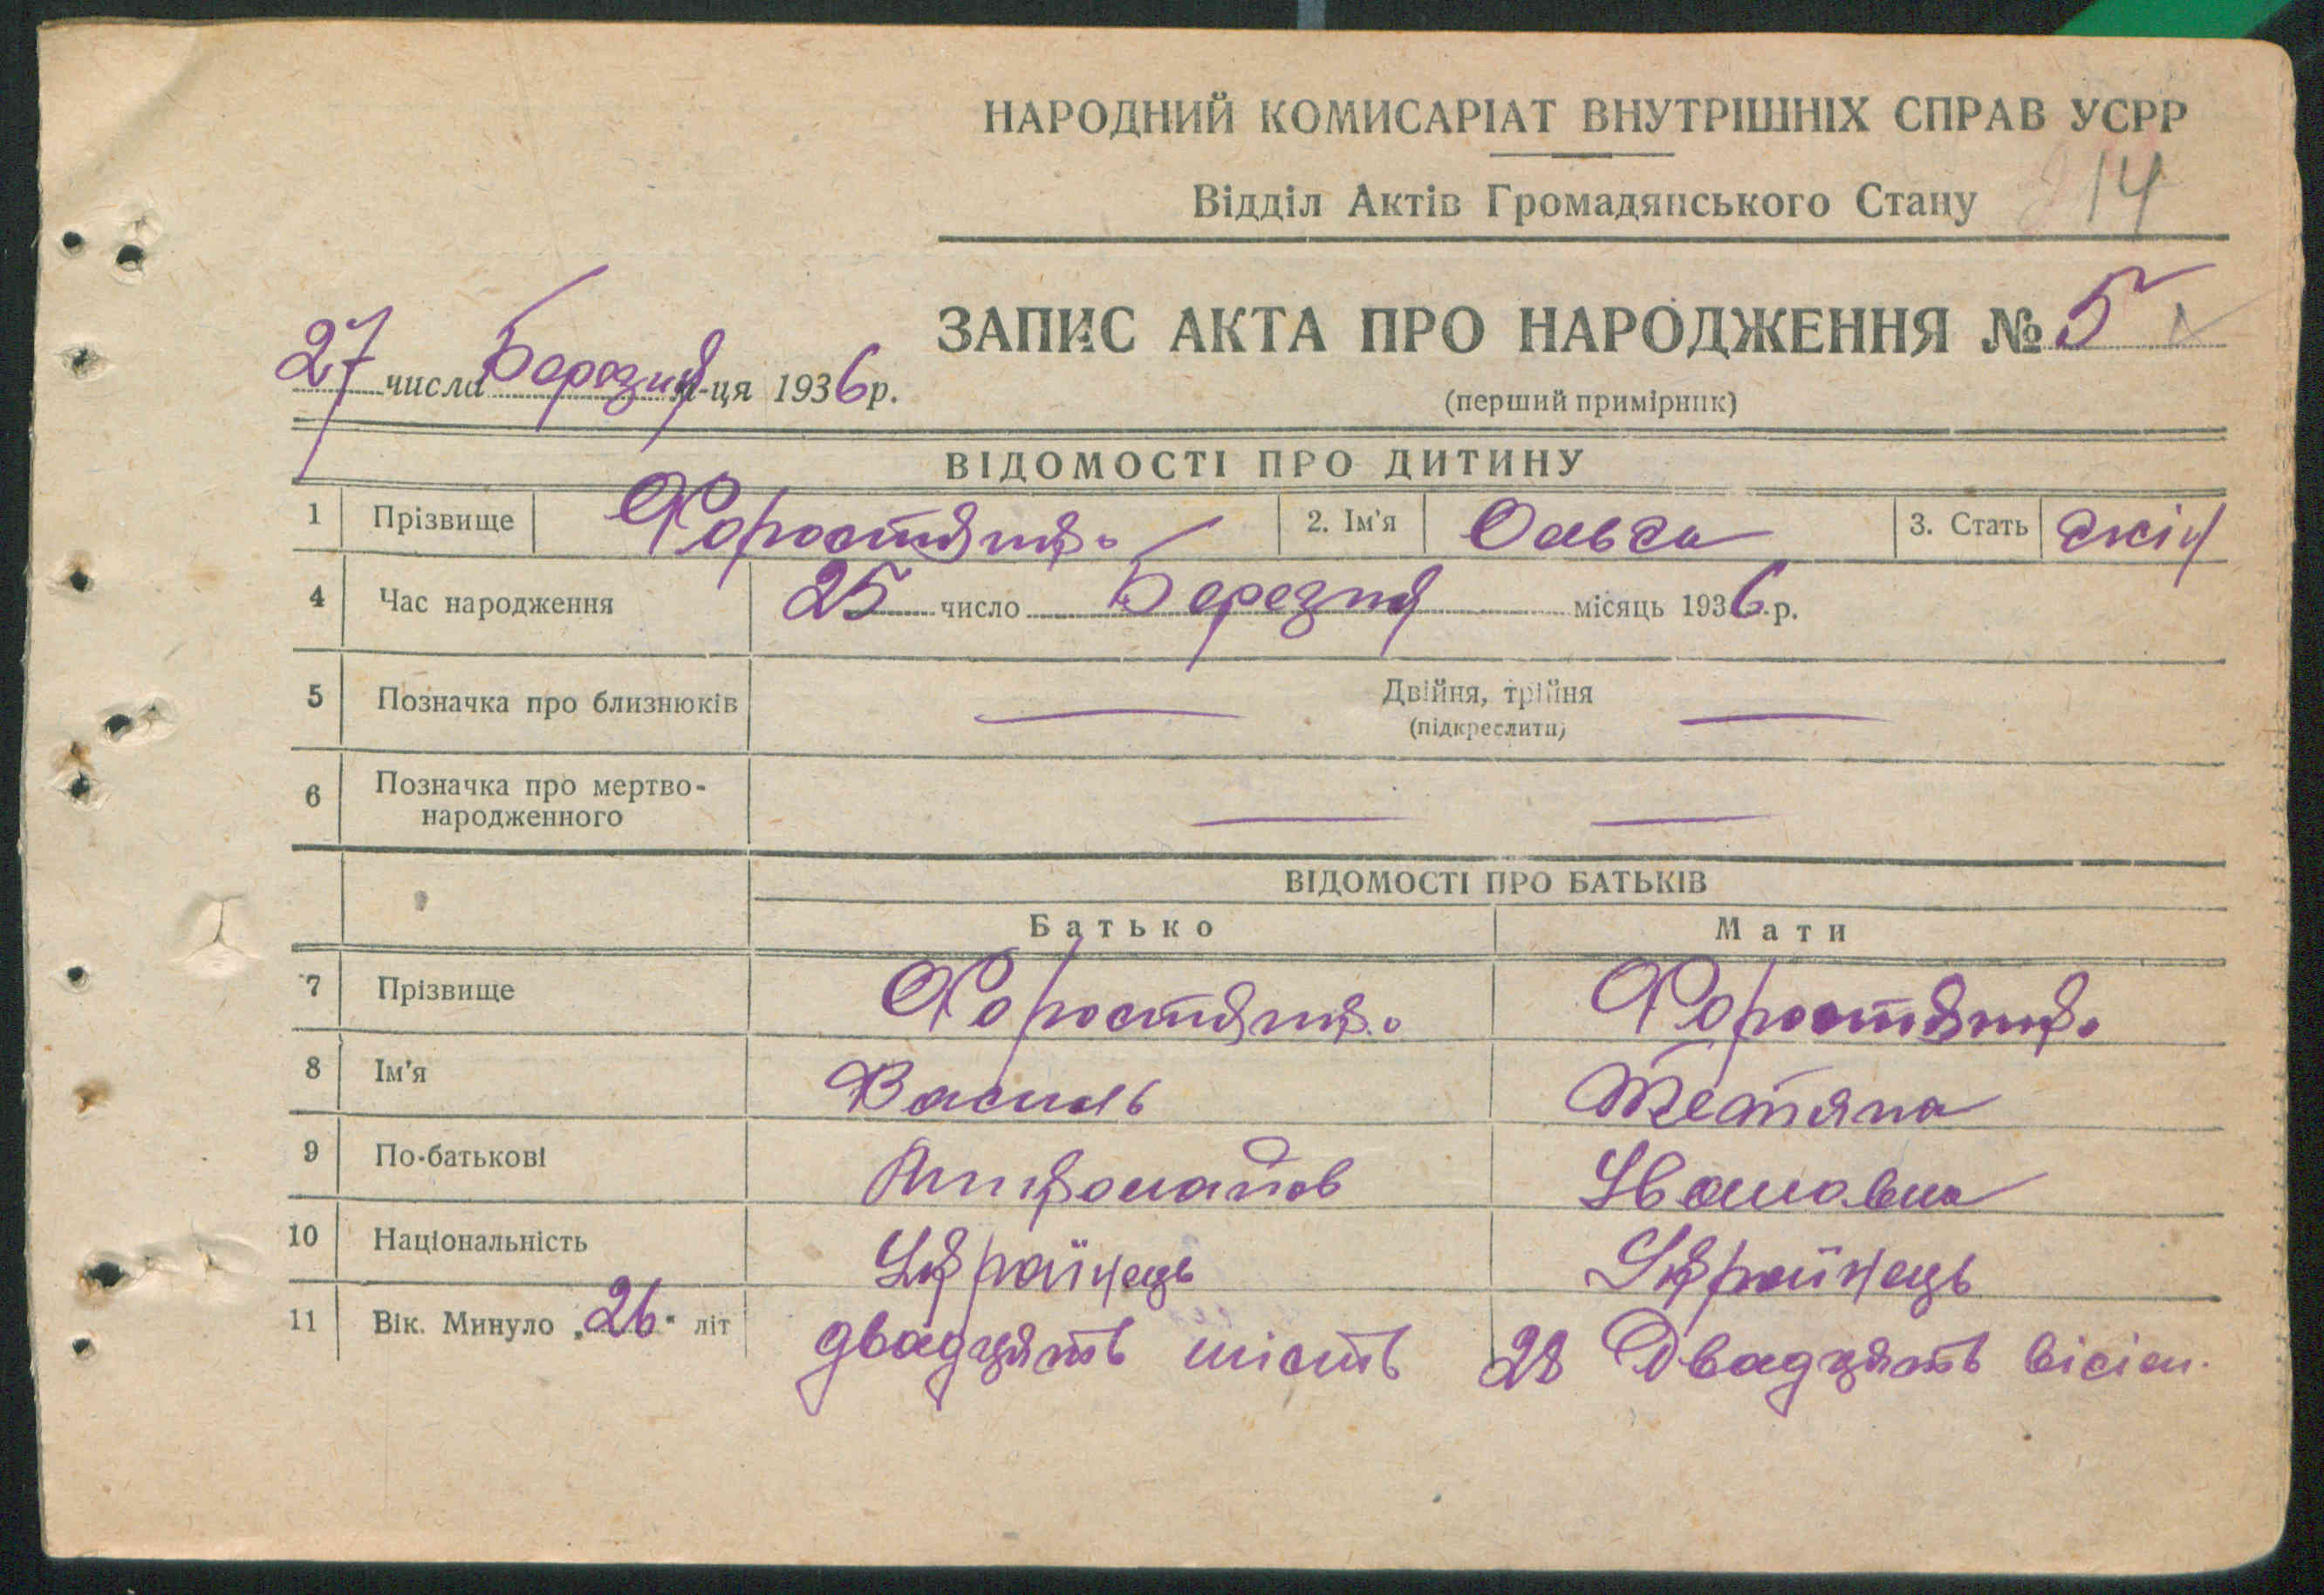 НАРОДНИЙ КОМИСАРІАТ ВНУТРІШНІХ СПРАВ УСРР
Відділ Актів Громадянського Стану 14
27 числа Березня м-ця 1936 р.
ЗАПИС АКТА ПРО НАРОДЖЕННЯ № 5
(перший примірник)
ВІДОМОСТІ ПРО ДИТИНУ
1 Прізвище Форостяна 2. Ім'я Ольга 3. Стать жін
4 Час народження 25 число Березня місяць 1936 р.
5 Позначка про близнюків — Двійня, трійня —
(підкреслити)
6 Позначка про мертво-
народженного — —
ВІДОМОСТІ ПРО БАТЬКІВ
Батько Мати
7 Прізвище
8 Ім'я Василь Тетяна
9 По-батькові Івановна
10 Національність Українець Українець
11 Вік. Минуло „26" літ двадцять шість 28 Двадцять вісім.